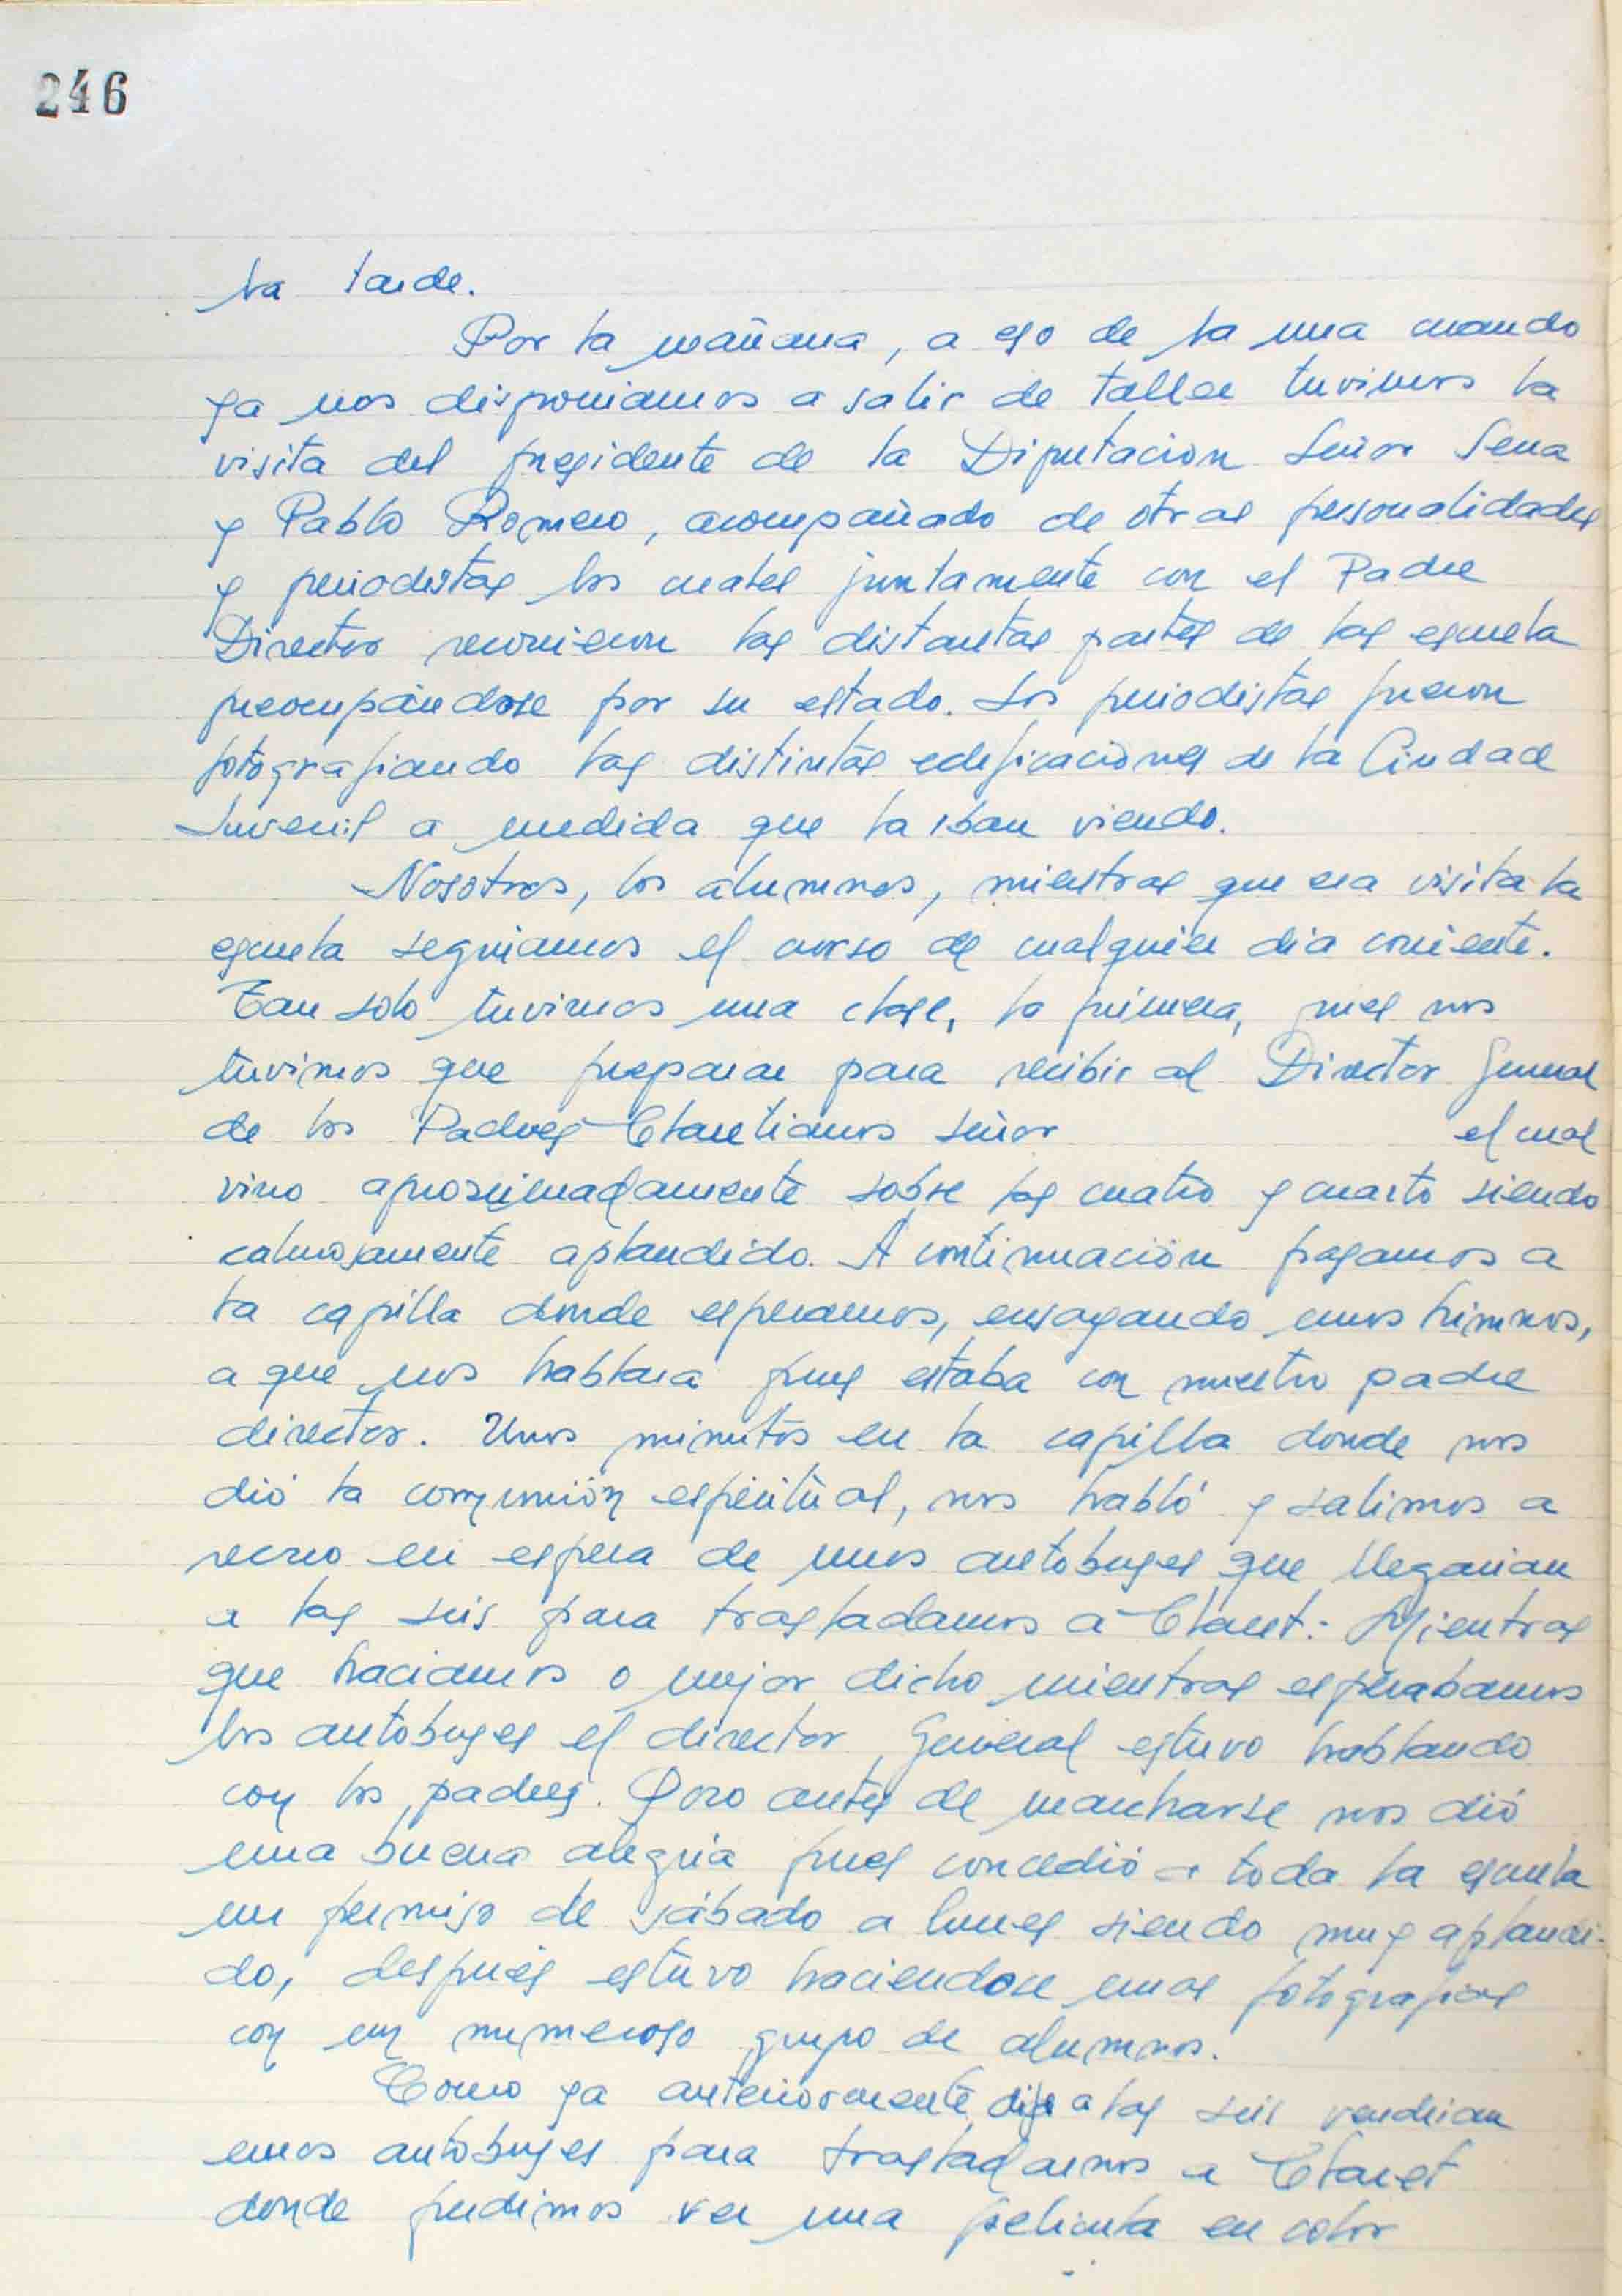 246
la tarde.
Por la mañana, a eso de la una cuando
ya nos disponiamos a salir de taller tuvimos la
visita del presidente de la Diputacion Señor Serra
y Pablo Romero, acompañado de otras personalidades
y periodistas los cuales juntamente con el Padre
Director recorrieron las distantas partes de las escuela
preocupándose por su estado. Los periodistas fueron
fotografiando las distintas edificaciones de la Ciudad
Juvenil a medida que la iban viendo.
Nosotros, los alumnos, mientras que era visita la
escuela seguiamos el curso de cualquier dia corriente.
Tan solo tuvimos una clase, la primera, pues nos
tuvimos que preparar para recibir al Director General
de los Padres Claretianos señor el cual
vino aproximadamente sobre las cuatro y cuarto siendo
calurosamente aplaudido. A continuación pasamos a
la capilla donde esperamos, ensayando unos himnos,
a que nos hablara pues estaba con nuestro padre
director. Unos minutos en la capilla donde nos
dió la comunión espiritual, nos habló y salimos a
recreo en espera de unos autobuses que llegarian
a las seis para trasladarnos a Claret. Mientras
que haciamos o mejor dicho mientras esperabamos
los autobuses el director General estuvo hablando
con los padres. Pero antes de marcharse nos dió
una buena alegria pues concedió a toda la escuela
un permiso de sábado a lunes siendo muy aplaudi-
do, después estuvo haciendose unas fotografias
con un numeroso grupo de alumnos.
Como ya anteriormente dije a las seis vendrian
unos autobuses para trasladarnos a Claret
donde pudimos ver una pelicula en color